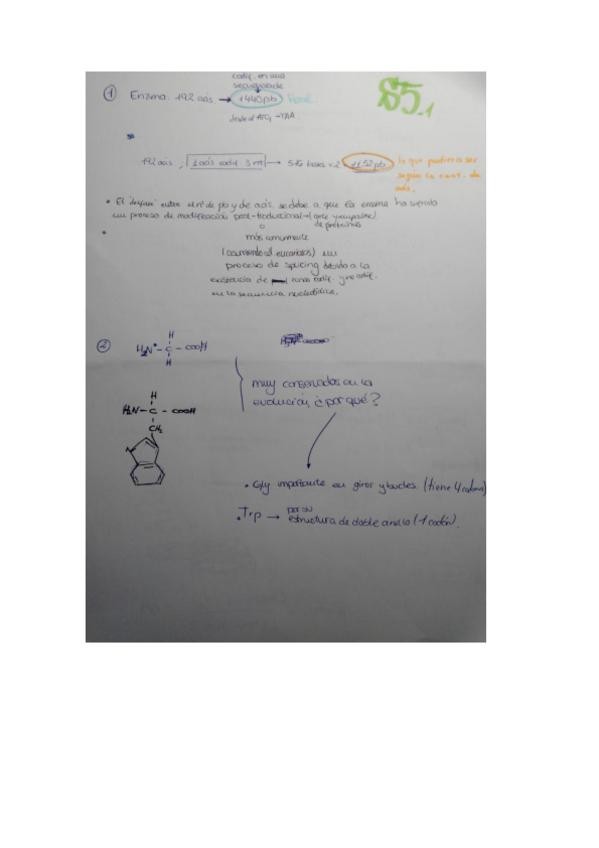 codif. en una
secuencia de
① Enzima: 192 aás → 1440 pb
desde el ATG → TAA
S5.1
192 aás ; 1 aás codif. 3 nt → 576 bases x2 → 1152 pb lo que pudiera ser
según la cant. de
aás.
• El desfase entre el nº de pb y de aás. se debe a que la enzima ha sufrido
un proceso de modificación post-traduccional → (corte y
o de proteínas
más comúnmente
un
proceso de splicing debido a la
existencia de zonas codif. y no codif.
en la secuencia nucleotídica.
②
H
H₂N - C - COOH
H
muy conservados en la
evolución ¿por qué?
H
H₂N - C - COOH
CH₂
• Gly importante en giros y bucles. (tiene 4 codones)
• Trp → por su
estructura de doble anillo (1 codón).